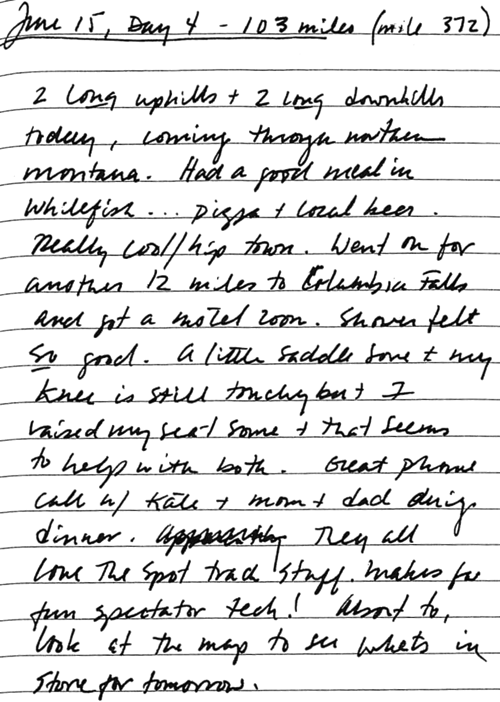 June 15, Day 4 - 103 miles (mile 372)
2 long uphills + 2 long downhills
today, coming through northern
montana. Had a good meal in
Whitefish... pizza + local beer.
Really cool/hip town. Went on for
another 12 miles to Columbia Falls
and got a motel room. Shower felt
so good. A little saddle sore + my
knee is still touchy but I
raised my seat some + that seems
to help with both. Great phone
call w/ Kate + mom + dad during
dinner. They all
love the Spot track stuff. Makes for
fun spectator tech! About to
look at the map to see whats in
store for tomorrow.